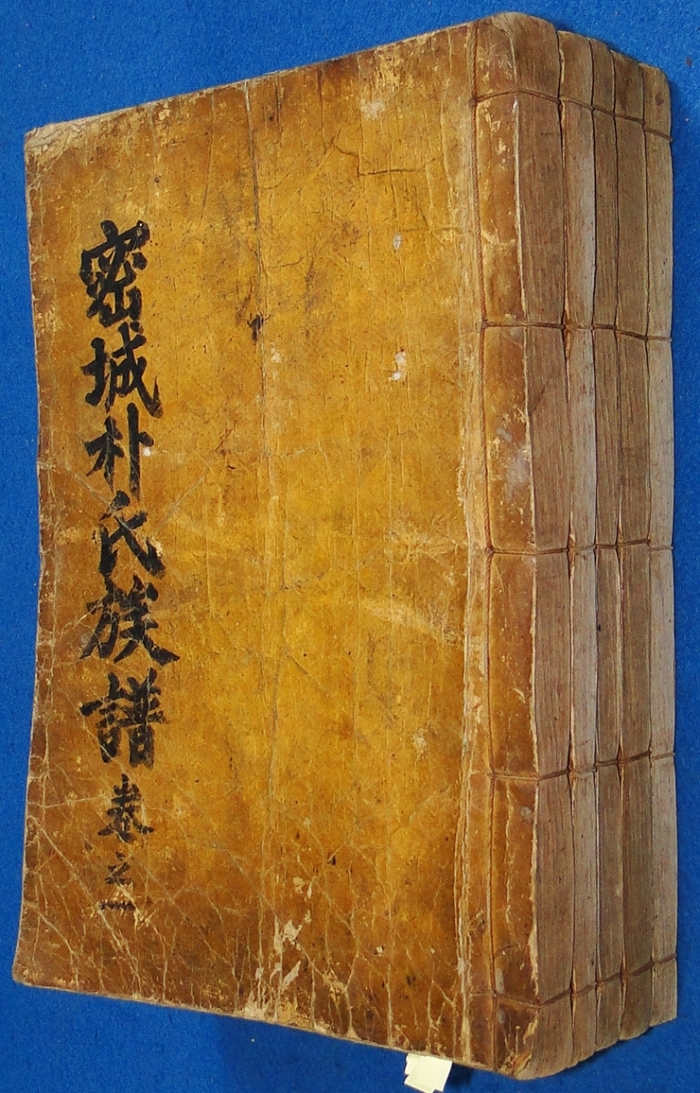 密城朴氏族譜 卷之一